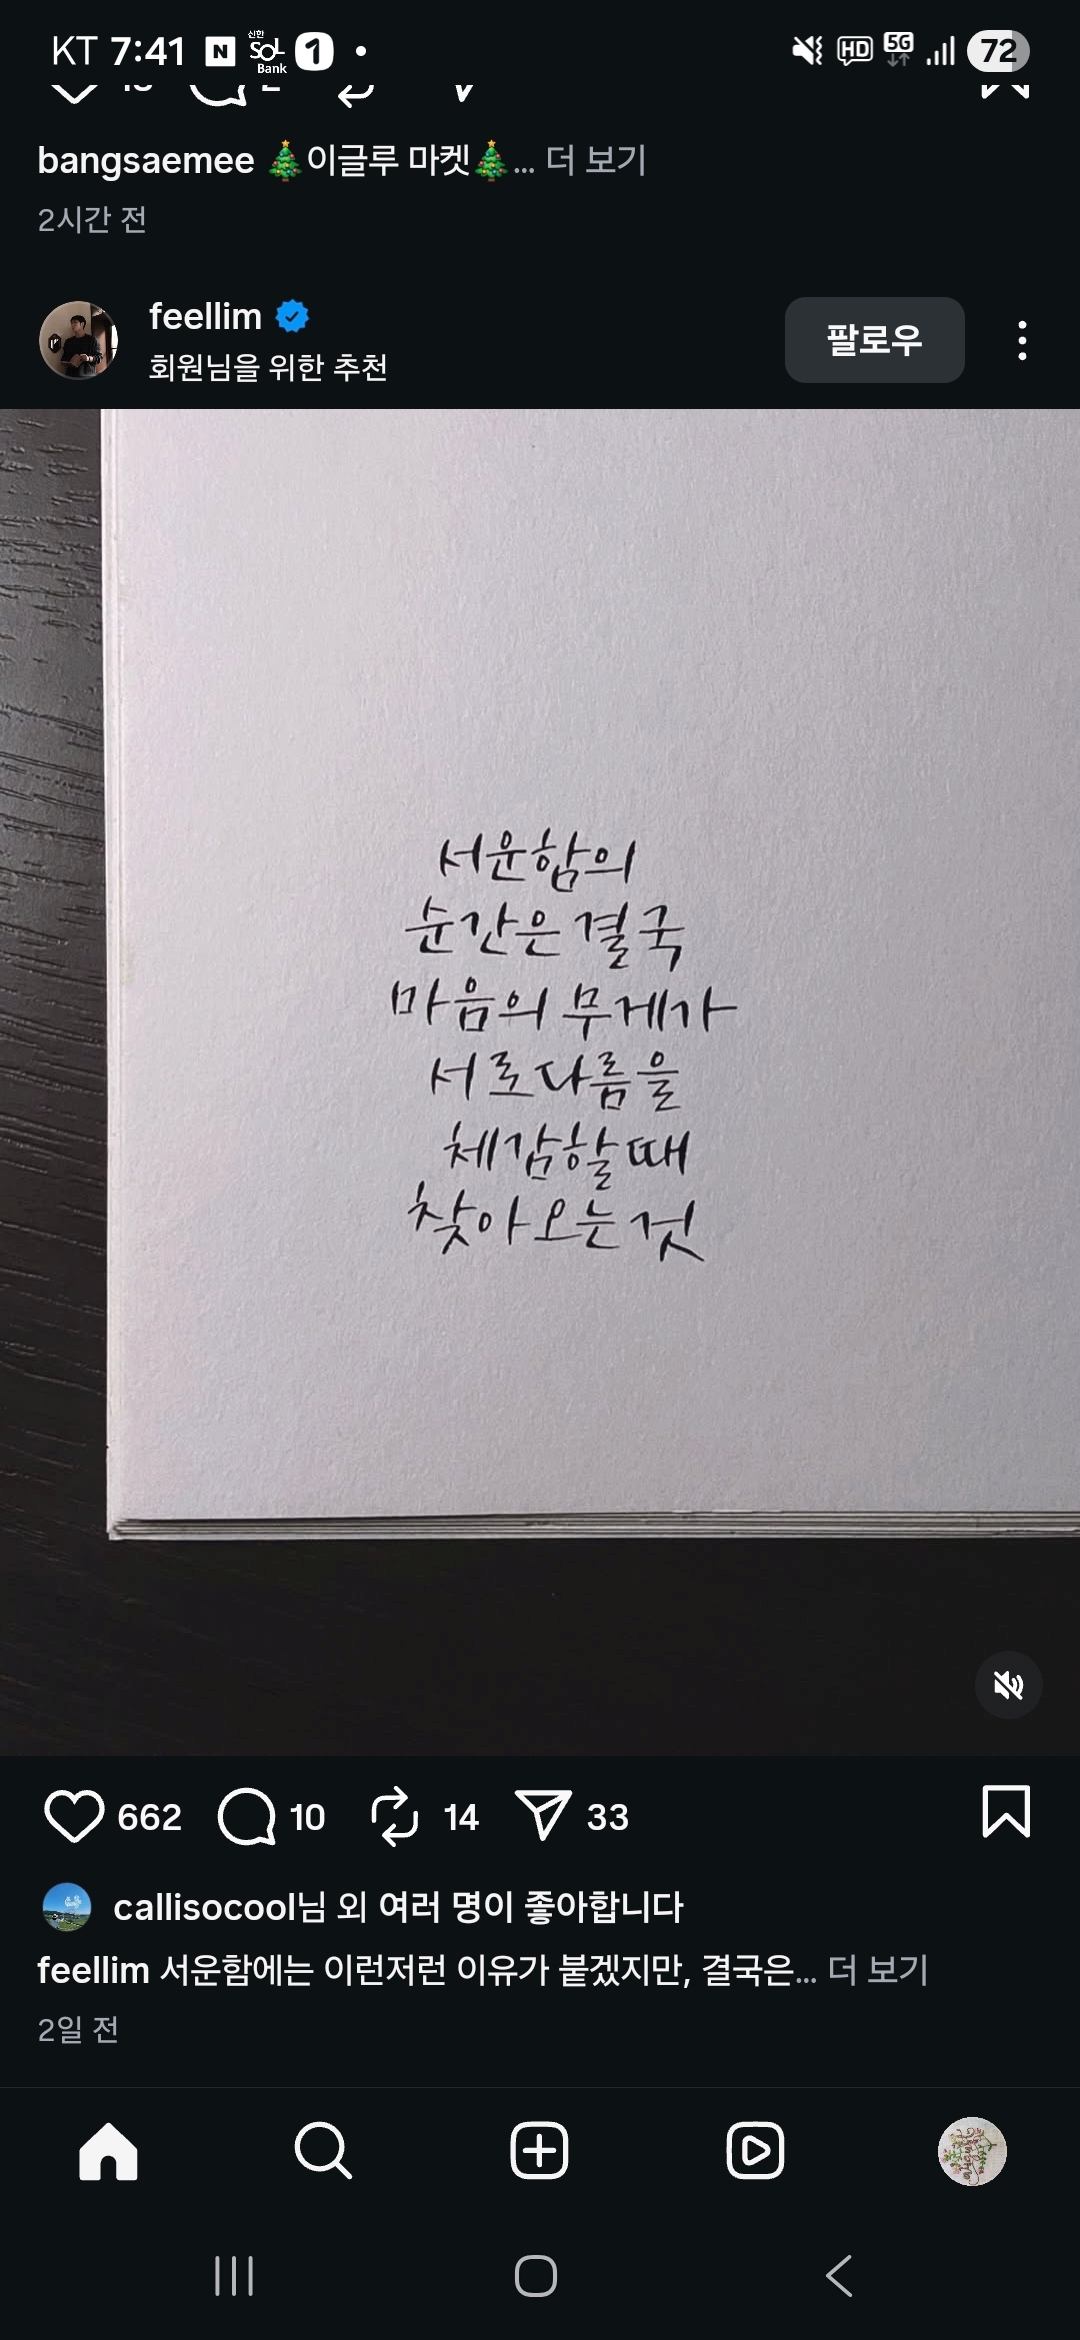 KT 7:41 N 신한 SOL Bank 1 HD 5G 72
bangsaemee 🎄이글루 마켓🎄... 더 보기
2시간 전
feellim
회원님을 위한 추천
팔로우
서운함의
순간은 결국
마음의 무게가
서로 다름을
체감할 때
찾아오는 것
662 10 14 33
callisocool님 외 여러 명이 좋아합니다
feellim 서운함에는 이런저런 이유가 붙겠지만, 결국은... 더 보기
2일 전